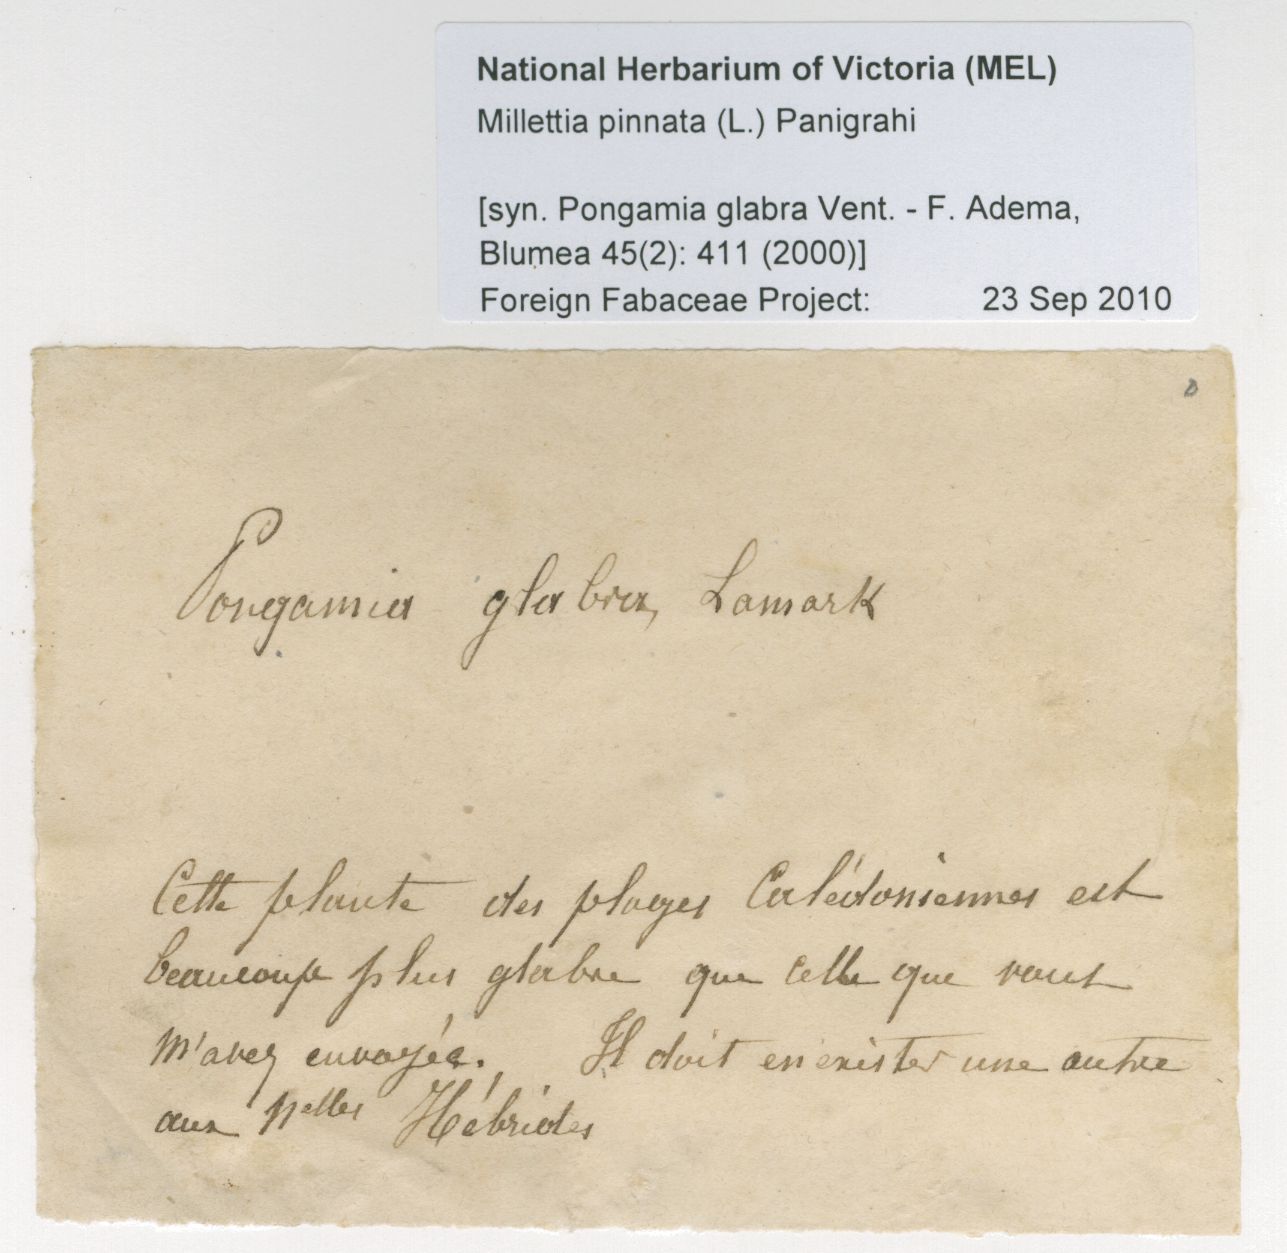 National Herbarium of Victoria (MEL)
Millettia pinnata (L.) Panigrahi
[syn. Pongamia glabra Vent. - F. Adema,
Blumea 45(2): 411 (2000)]
Foreign Fabaceae Project: 23 Sep 2010
Pongamia glabra, Lamark
Cette plante des plages Calédoniennes est
beaucoup plus glabre que celle que vous
m'avez envoyée. Il doit en exister une autre
aux Nelles Hébrides